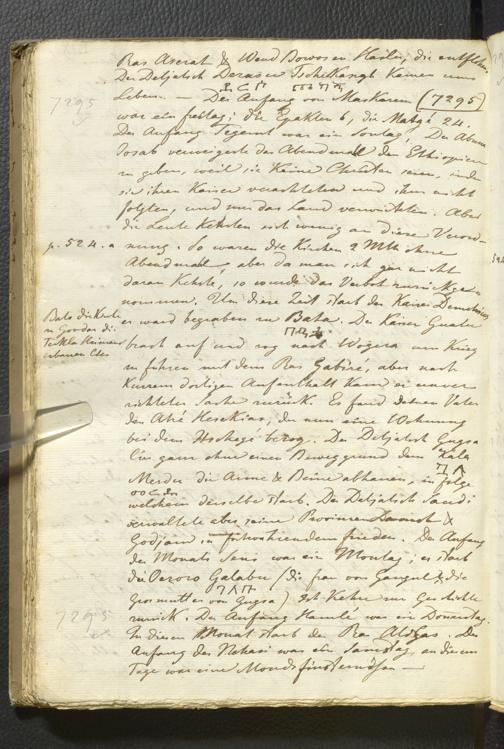 Ras Aserat & Wend Bowosen Hailu, die entflohen
Der Detjatsch Derasu Tschilkasgh kamen ums
Leben. Der Anfang von Maskarem (7295)
war ein freitag; die Epakten 6, die Matqé 24.
Der Anfang Tegemt war ein Sontag. Der Abuna
Josab verweigerte das Abendmall den Ethiopiern
zu geben, weil sie keine Christen seien, indem
sie ihren Kaiser verachteten und ihm nicht
folgten, und nur das Land verwüsteten. Aber
die Leute kehrten sich wenig an diese Verord-
p. 524. a
nung. So waren die Kirchen 2 Mth ohne
Abendmall, aber da man sich gar nicht
daran kehrte, so wurde das Verbot zurückge-
nommen. Um diese Zeit starb der Kaiser Demetrius
er ward begraben in Bata. Der Kaiser Gualu
Bata die Kirche
in Gondar die
Tekla Haimanot
erbauen
brach auf und zog nach Wogera um Krieg
zu führen mit dem Ras Gabriè, aber nach
kurzem dortigen Aufenthalt kam er unver
richteter Sache zurück. Er fand seinen Vater
den Atié Heskias, der nun eine Wohnung
bei dem Etschegé bezog. Der Detjatsch Gugsa
lies ganz ohne einen Beweggrund dem Hailu
Merdu die Arme & Beine abhauen, in folge
welchem derselbe starb. Der Detjatsch
verwaltete aber seine Provinzen Damot &
Godjam in frieden. Der Anfang
des Monats Sene war ein Montag; es starb
die Oezoro Galabu (die frau von Gangul & die
Grosmutter von Gugsa) Ich kehre zur Geschichte
zurück. Der Anfang Hamlé war ein Donnerstag.
7295
In diesem Monat starb der Ras Aldgas. Der
Anfang des Nehasi war ein Samstag, an diesem
Tage war eine Mondsfinsterniss —